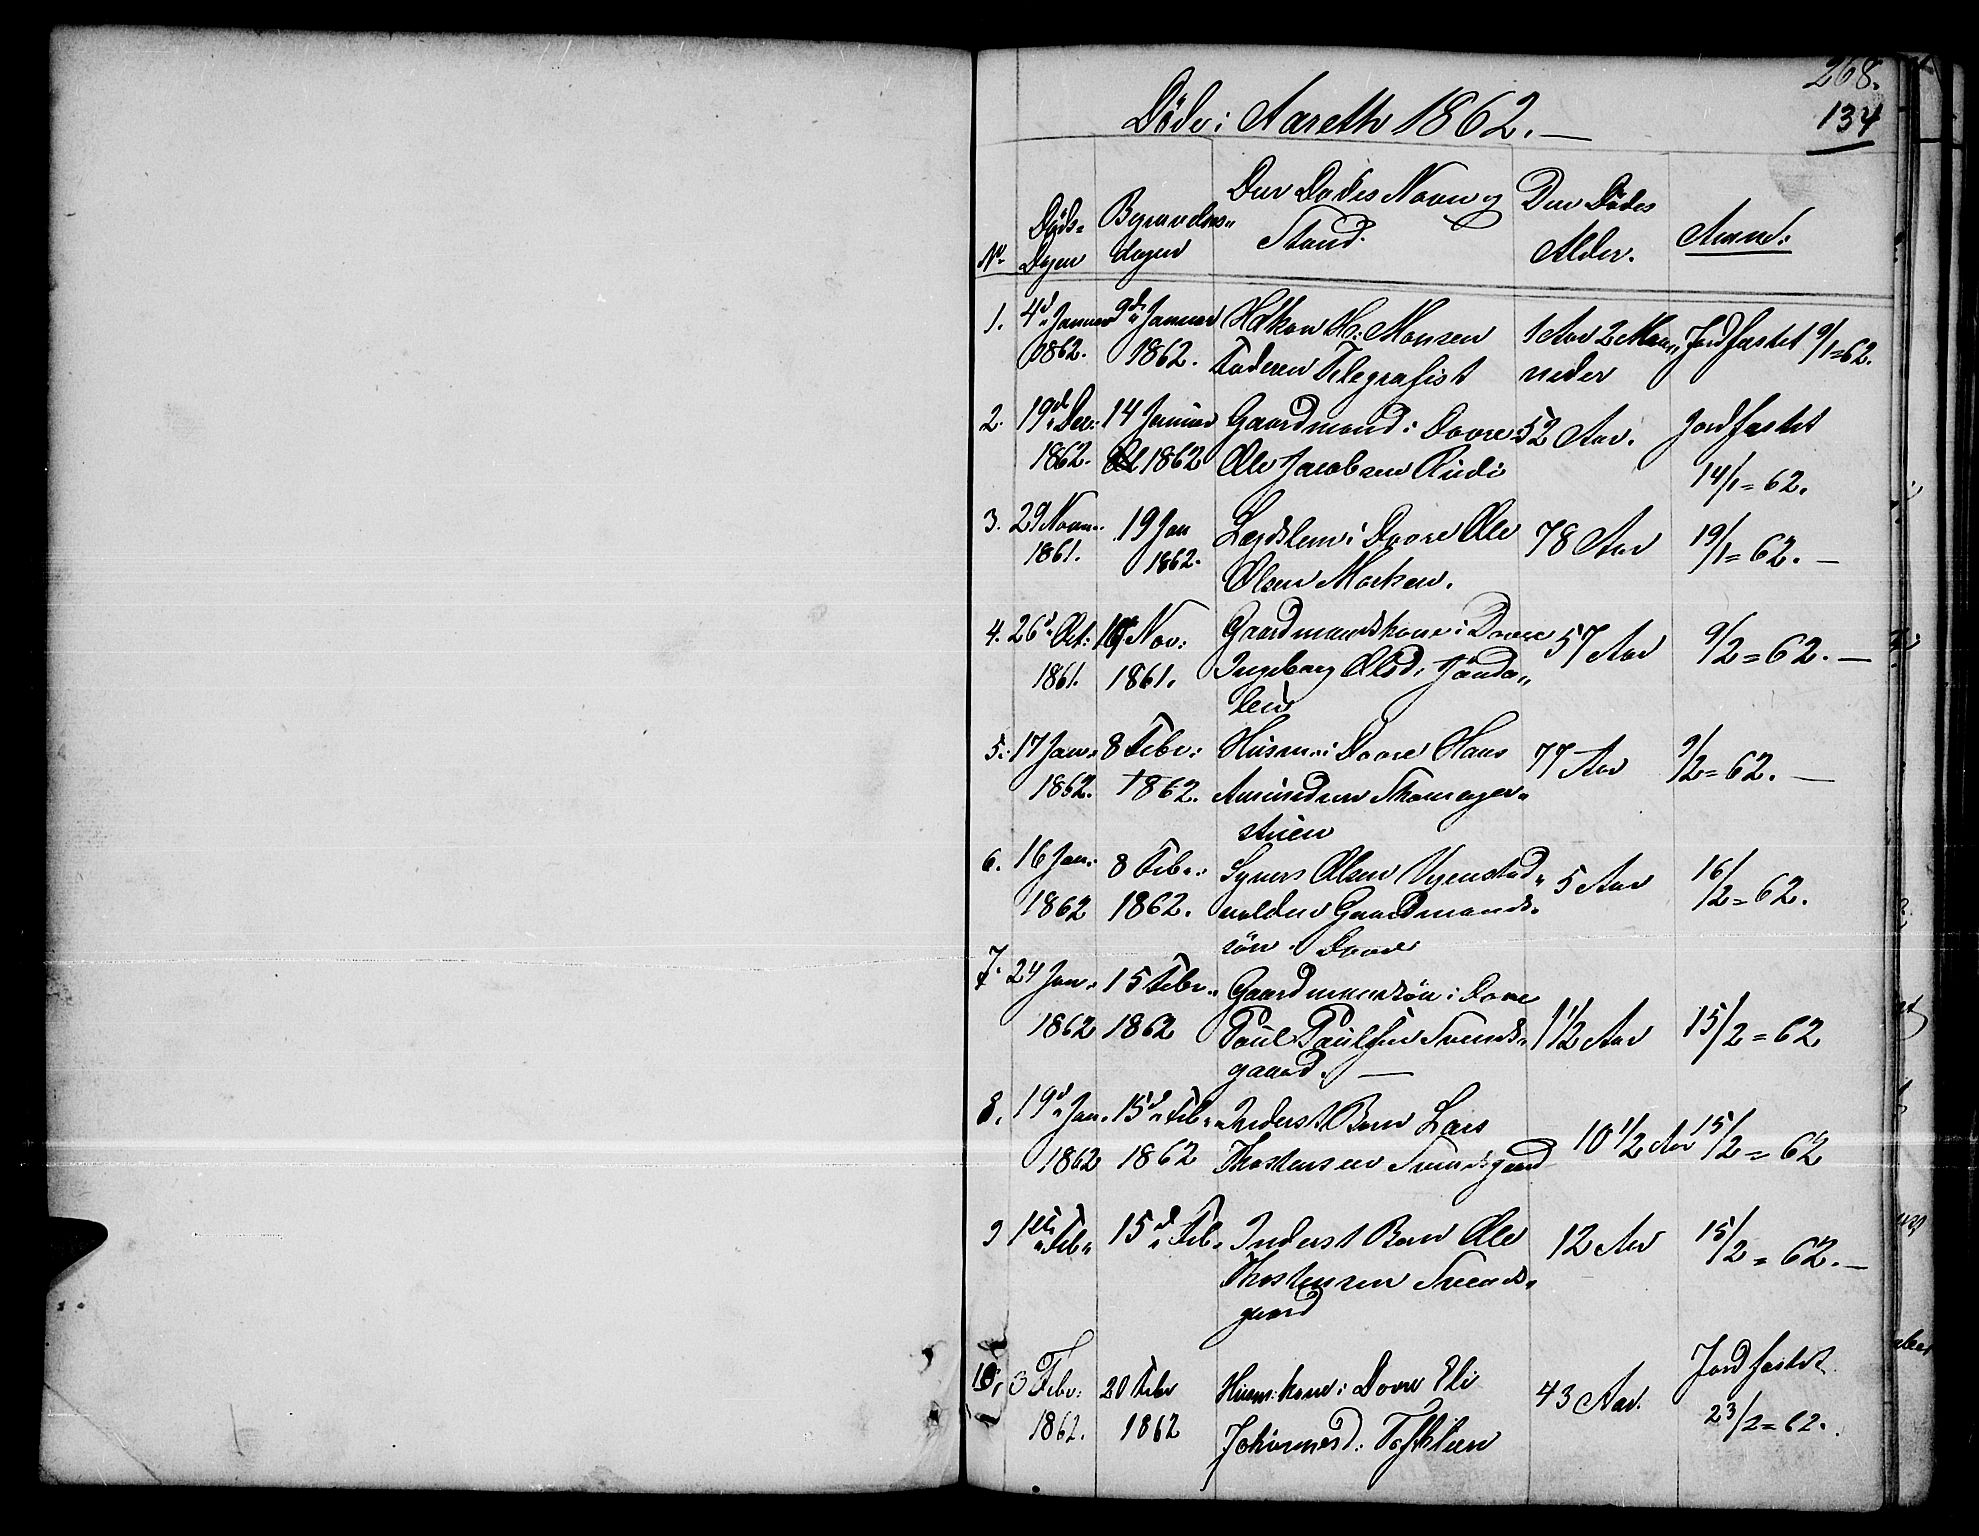 268.
134
Döde i Aareth 1862.
No. Döds-Dagen Begravelses-dagen Den Dødes Navn og Stand. Den Dødes Alder. Anm:
1. 4d Januar 9d Januar Håkon H: Monsen 1 Aar 2 Maa- Jordfæstet 9/1=62.
1862. 1862. Faderen Telegrafist neder
2. 19d Dec: 14 Januar Gaardmand i Dovre 52 Aar. Jordfæstet
1862. 1862 Ole Jacobsen 14/1=62.
3. 29 Novm. 19 Jan Lægdslem i Dovre Ole 78 Aar 19/1=62.
1861. 1862. Olsen Morken.
4. 26d Oct: Nov: Gaardmandskone i Dovre 57 Aar 9/2=62.
1861. 1861. Ingeborg Olsd: Jönda-
len
5. 17 Jan. 8 Febr: Husm. i Dovre Hans 77 Aar 9/2=62.
1862. 1862. Amundsen Skomager-
stuen
6. 16 Jan. 8 Feb. Syvers Olsen 5 Aar 16/2=62.
1862 1862. Gaardmands-
sön i Dovre
7. 24 Jan. 15 Febr. Gaardmandssön i Dovre
1862 1862 Paul Paulsen Svends- 1 1/2 Aar 15/2=62
gaard.
8. 19d Jan. 15d Feb. Inderst Barn Lars 10 1/2 Aar 15/2=62
1862 1862 Thostensen Svendsgaard
9 1ste Feb. 15d Feb. Inderst Barn Ole 12 Aar 15/2=62.
Thostensen Svends-
gaard
10. 3 Febr: 20 Febr Husm: kone i Dovre Eli 43 Aar. Jordfæstet
1862. 1862 Johannesd: Toftelien 23/2=62.